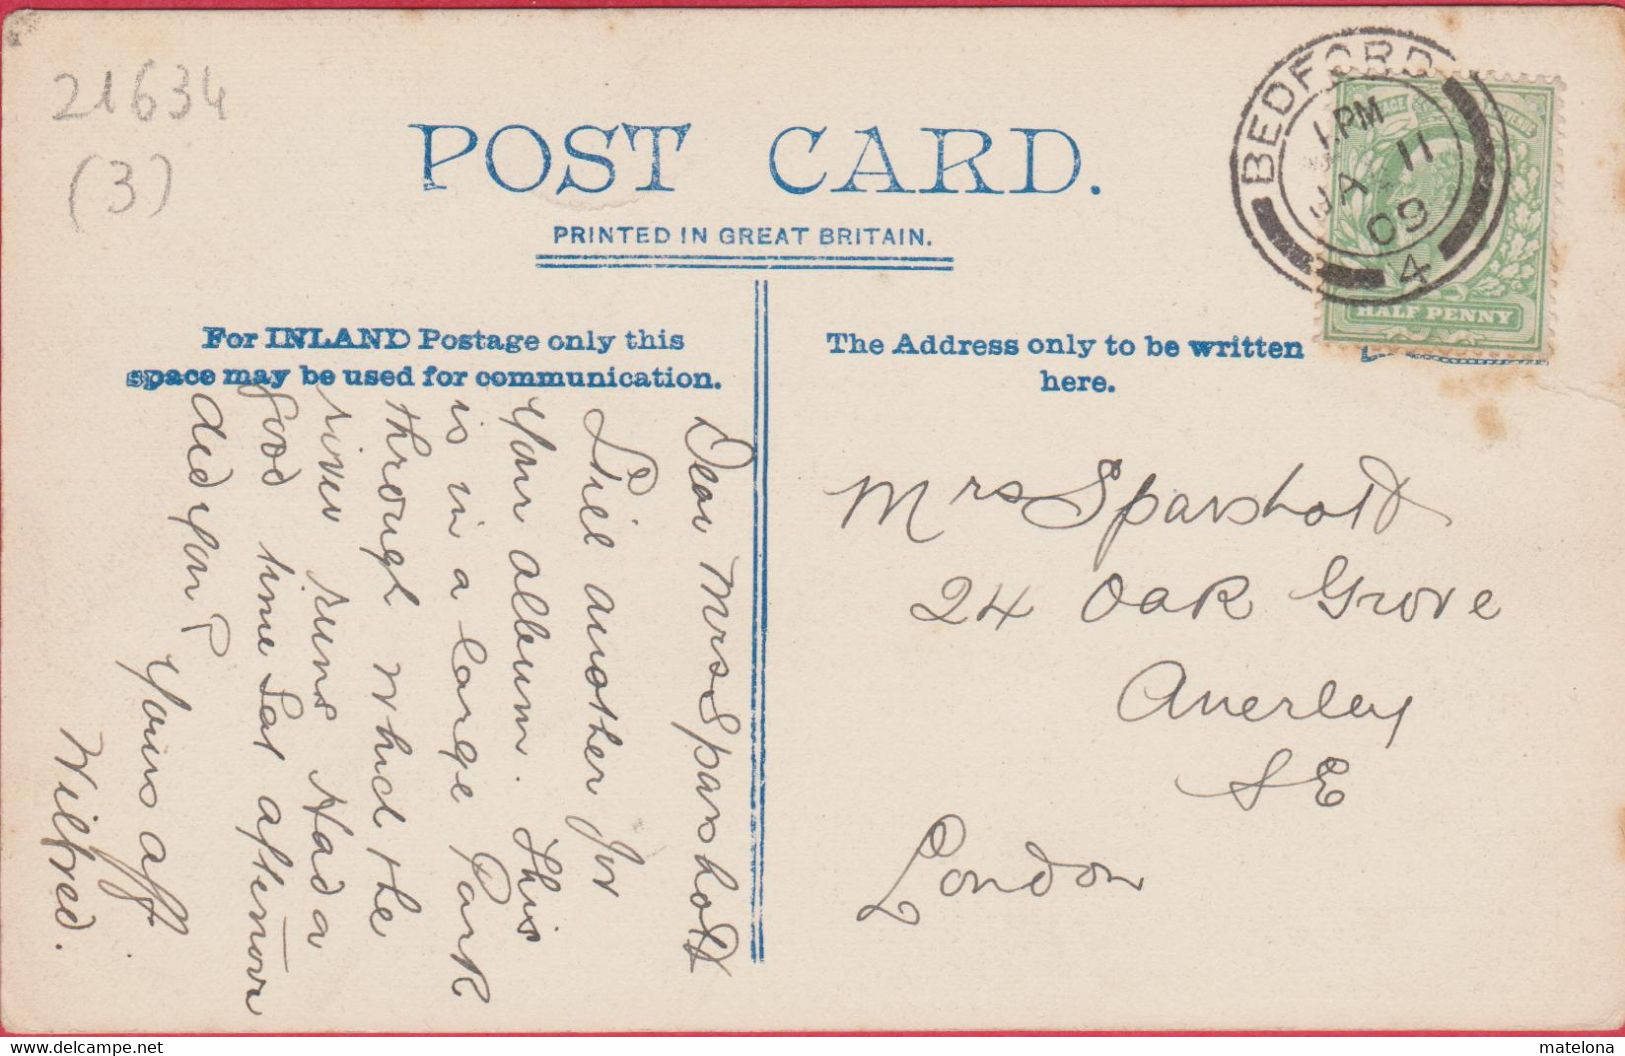 21634
(3)
POST CARD.
PRINTED IN GREAT BRITAIN.
For INLAND Postage only this
space may be used for communication.
The Address only to be written
here.
BEDFORD
1 PM
JA 11
09
4
HALF PENNY
Dear Mrs Sparshott
Still another for
your album. This
is in a large Park
through which the
river runs Had a
good time Sat afternoon
did you?
Yours aff
Wilfred.
Mrs Sparshott
24 Oak Grove
Anerley
SE
London
matelona